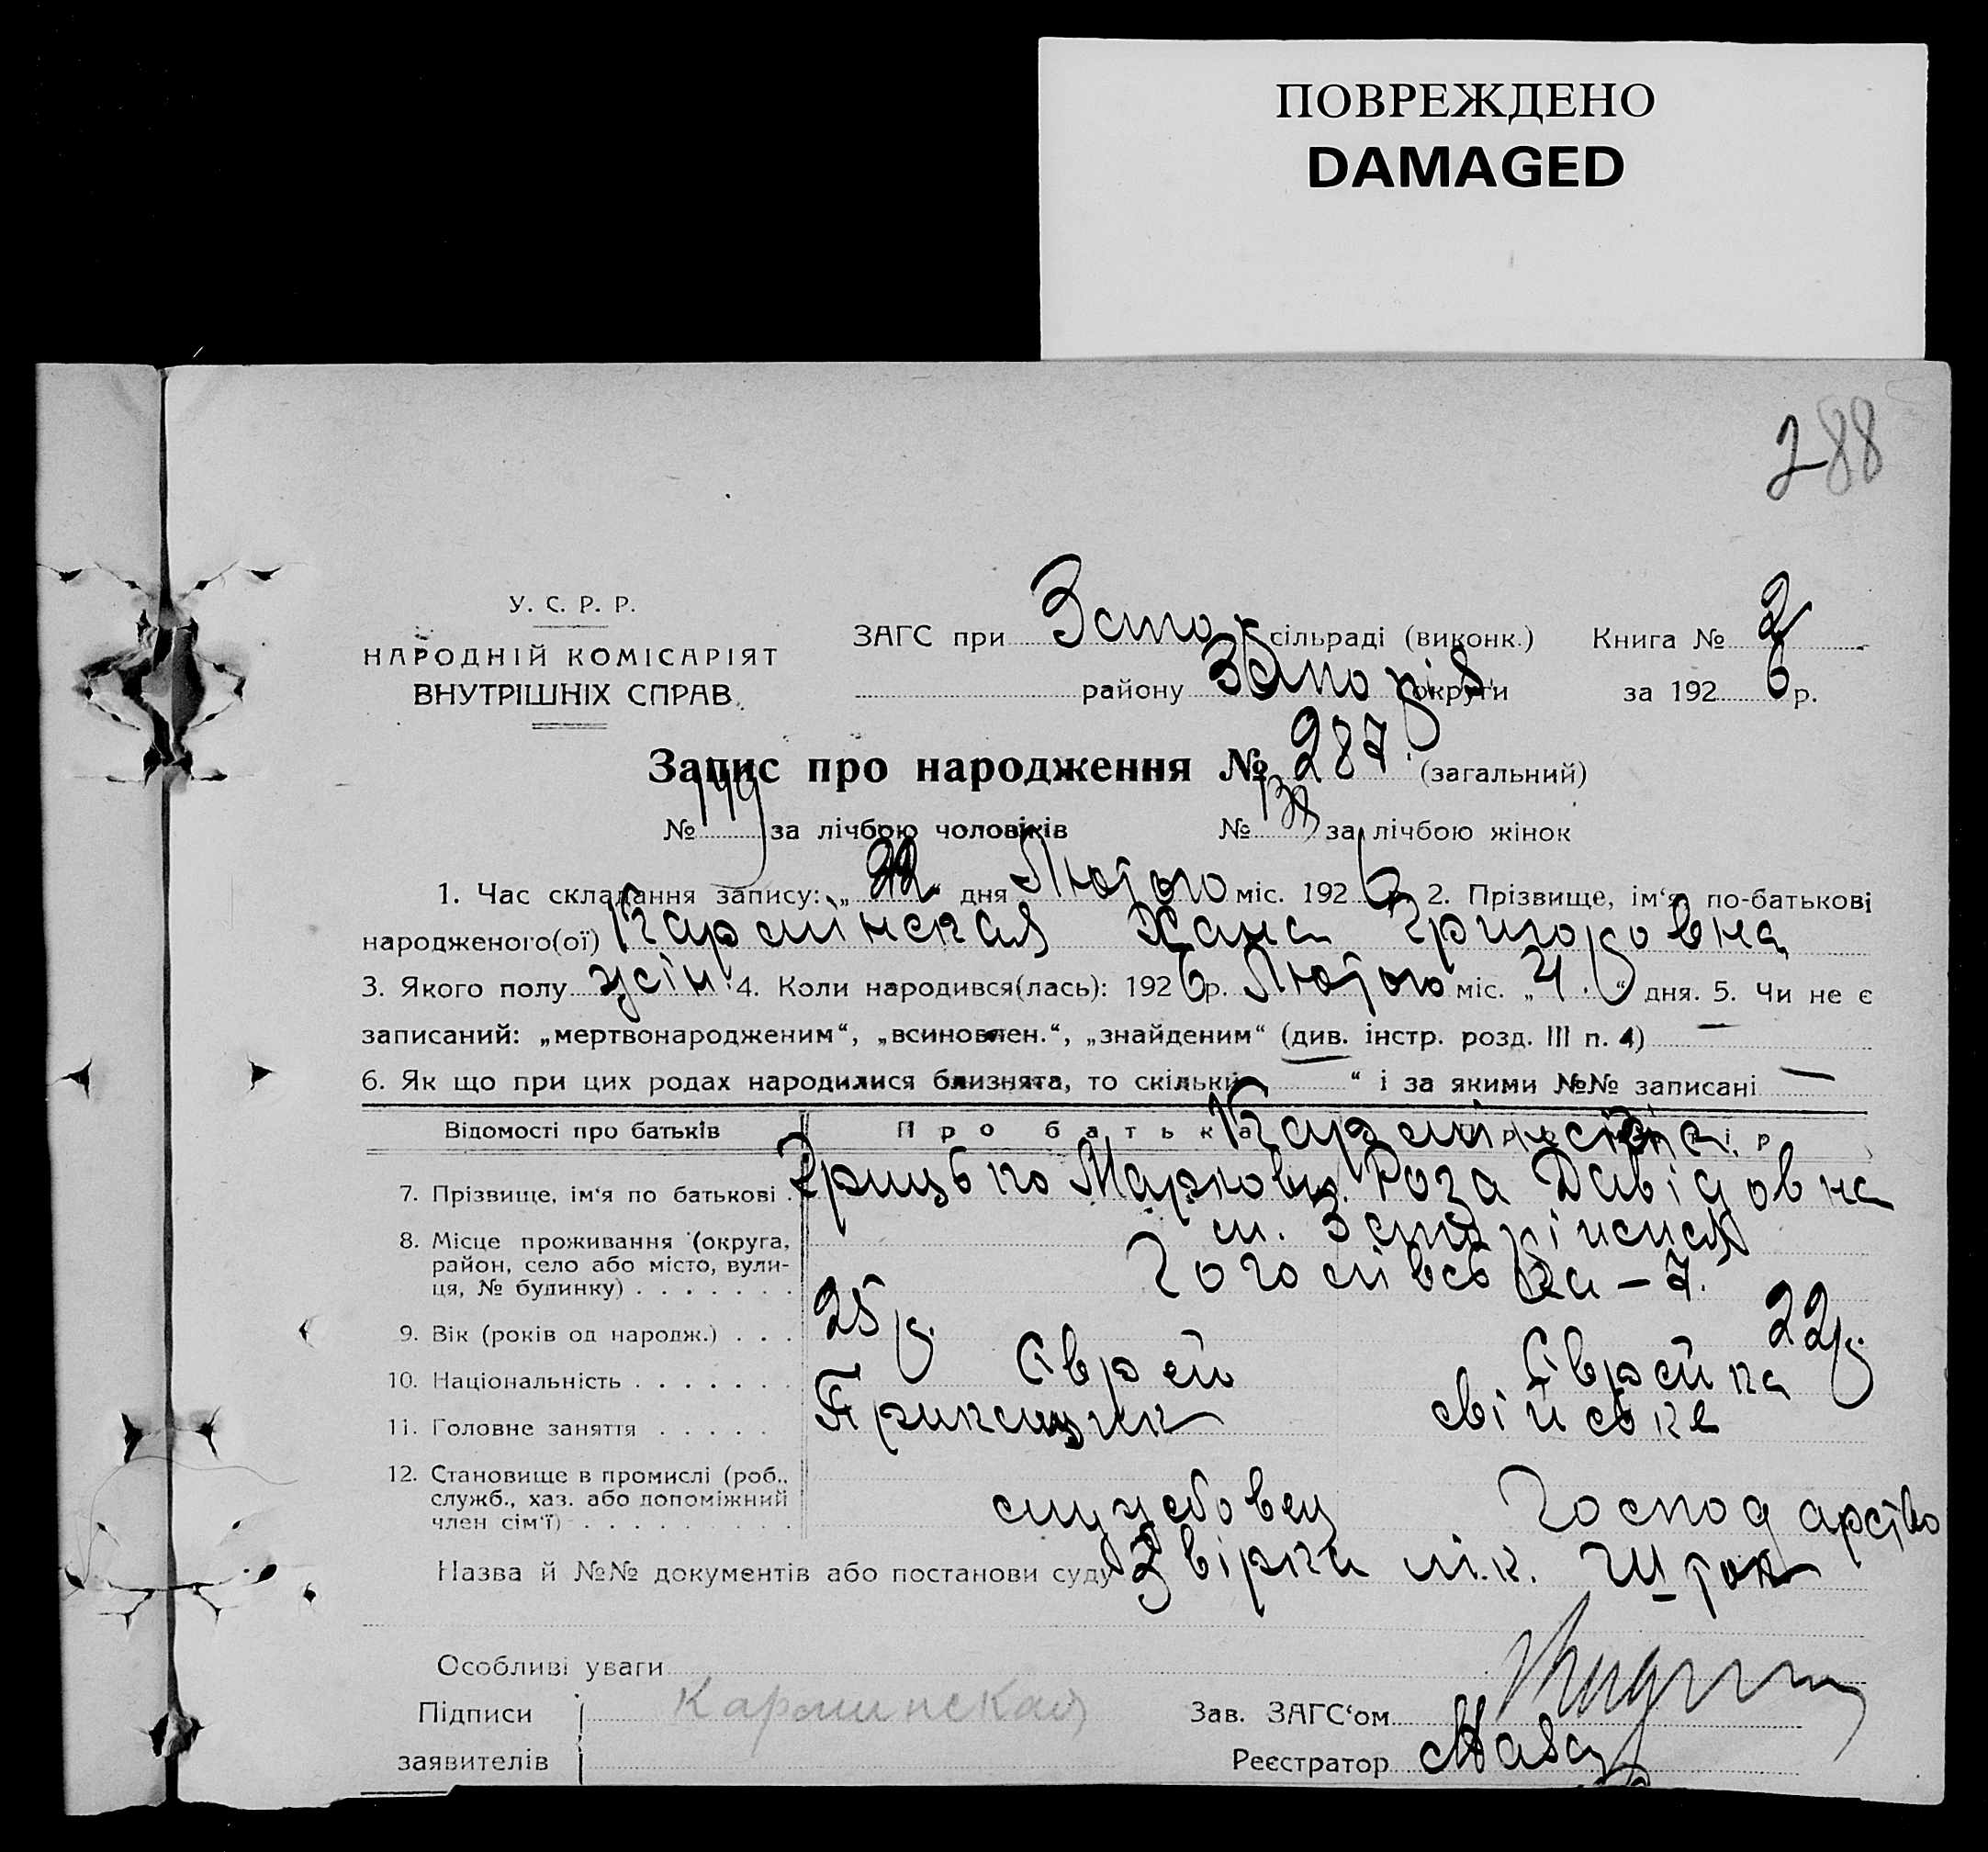 ПОВРЕЖДЕНО
DAMAGED
288
У. С. Р. Р.
НАРОДНІЙ КОМІСАРІЯТ
ВНУТРІШНІХ СПРАВ.
ЗАГС при Запор сільраді (виконк.) Книга № 2
району Запоріз. округи за 1926 р.
Запис про народження № 287. (загальний)
№ за лічбою чоловіків № за лічбою жінок
1. Час складання запису: „22“ дня Лютого міс. 1926 2. Прізвище, ім‘я, по-батькові
народженого(ої) Кармінская Хана Григоровна
3. Якого полу жін. 4. Коли народився(лась): 1926 р. Лютого міс. „4.“ дня. 5. Чи не є
записаний: „мертвонародженим“, „всиновлен.“, „знайденим“ (див. інстр. розд. III п. 4) —
6. Як що при цих родах народилися близнята, то скільки — “ і за якими №№ записані —
Відомості про батьків Про батька Про матір
Кармінскіа
7. Прізвище, ім‘я по батькові . Грицько Маркови. Роза Давідовна
8. Місце проживання (округа, район, село або місто, вулиця, № будинку) . . . . . . . м.
Гоголівська – 7.
9. Вік (років од народж.) . . . 25 р. 22 р.
10. Національність . . . . . . . Єврей Єврейка
11. Головне заняття . . . . . Прикащик свійське
12. Становище в промислі (роб., служб., хаз. або допоміжний член сім‘ї) . . . . . . . . . службовец господарство
Назва й №№ документів або постанови суду
Особливі уваги
Підписи Карминская Зав. ЗАГС‘ом
заявителів Реєстратор